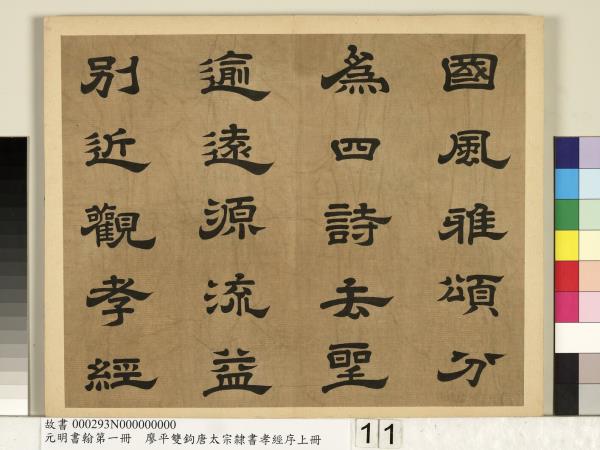 國風雅頌分
為四詩去聖
逾遠源流益
別近觀孝經
故書 000293N000000000
元明書翰第一冊 廖平雙鉤唐太宗隸書孝經序上冊
11